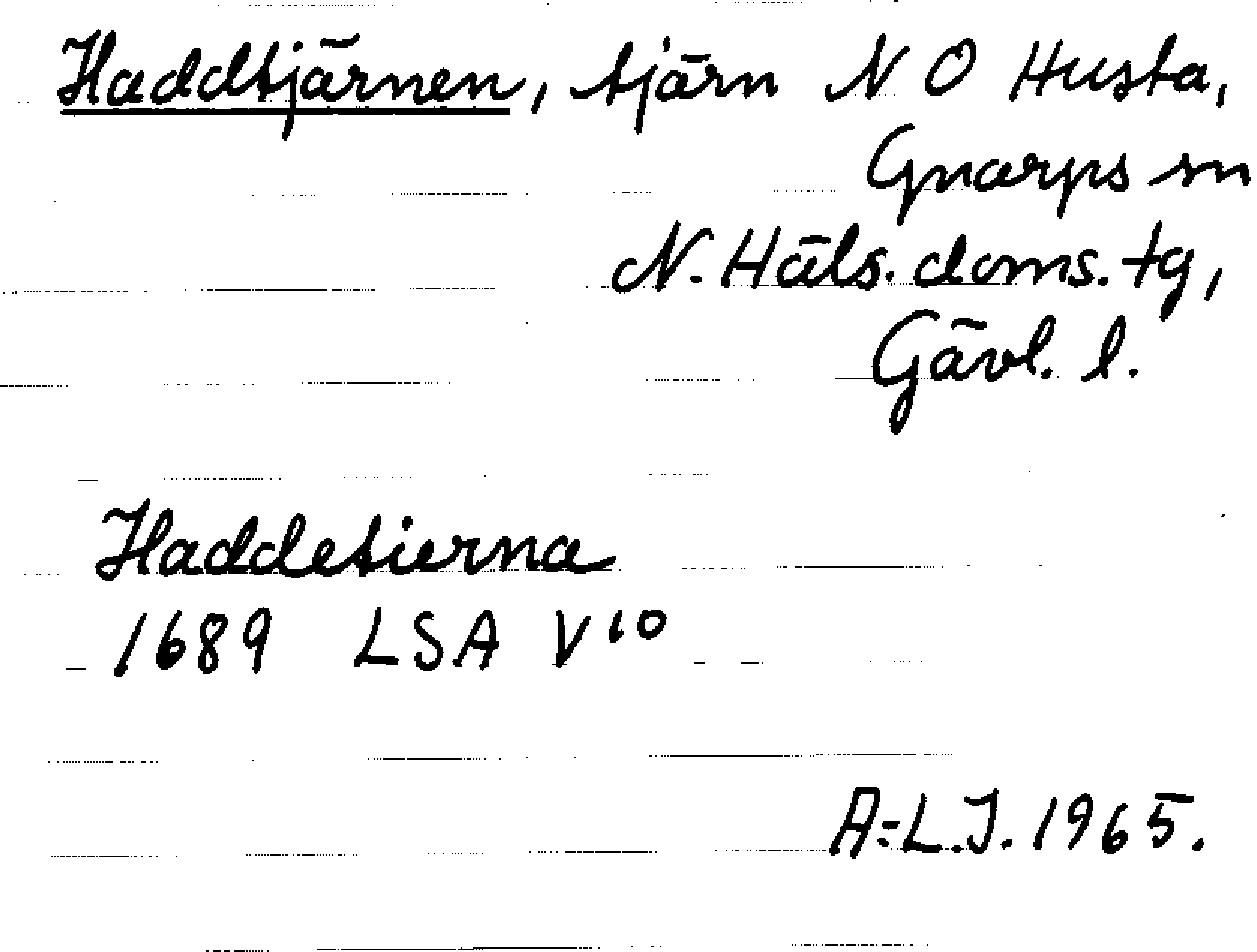 Haddtjärnen, tjärn N O Husta,
Gnarps sn
N. Häls. doms. tg,
Gävl. l.
Haddetierna
1689 LSA V¹⁰
A-L.J. 1965.